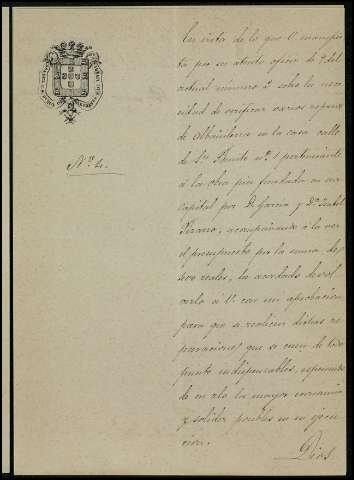 Nº 4.
En vista de lo que V. manifies
ta por su atento oficio de 7 del
actual número 2º sobre la nece
sidad de verificar varios reparos
de Albañilería en la casa calle
de Sn. Benito nº. 1 perteneciente
á la obra pia fundada en esa
capital por D. Garcia y Dª. Isabel
acompañando á la vez
el presupuesto por la suma de
400 reales, he acordado devol
verlo á V. con mi aprobacion
para que se realicen dichas re
paraciones que se creen de todo
punto indispensables, esperando
de su celo la mayor economía
y solidez posibles en su ejecu
cion.
Dios